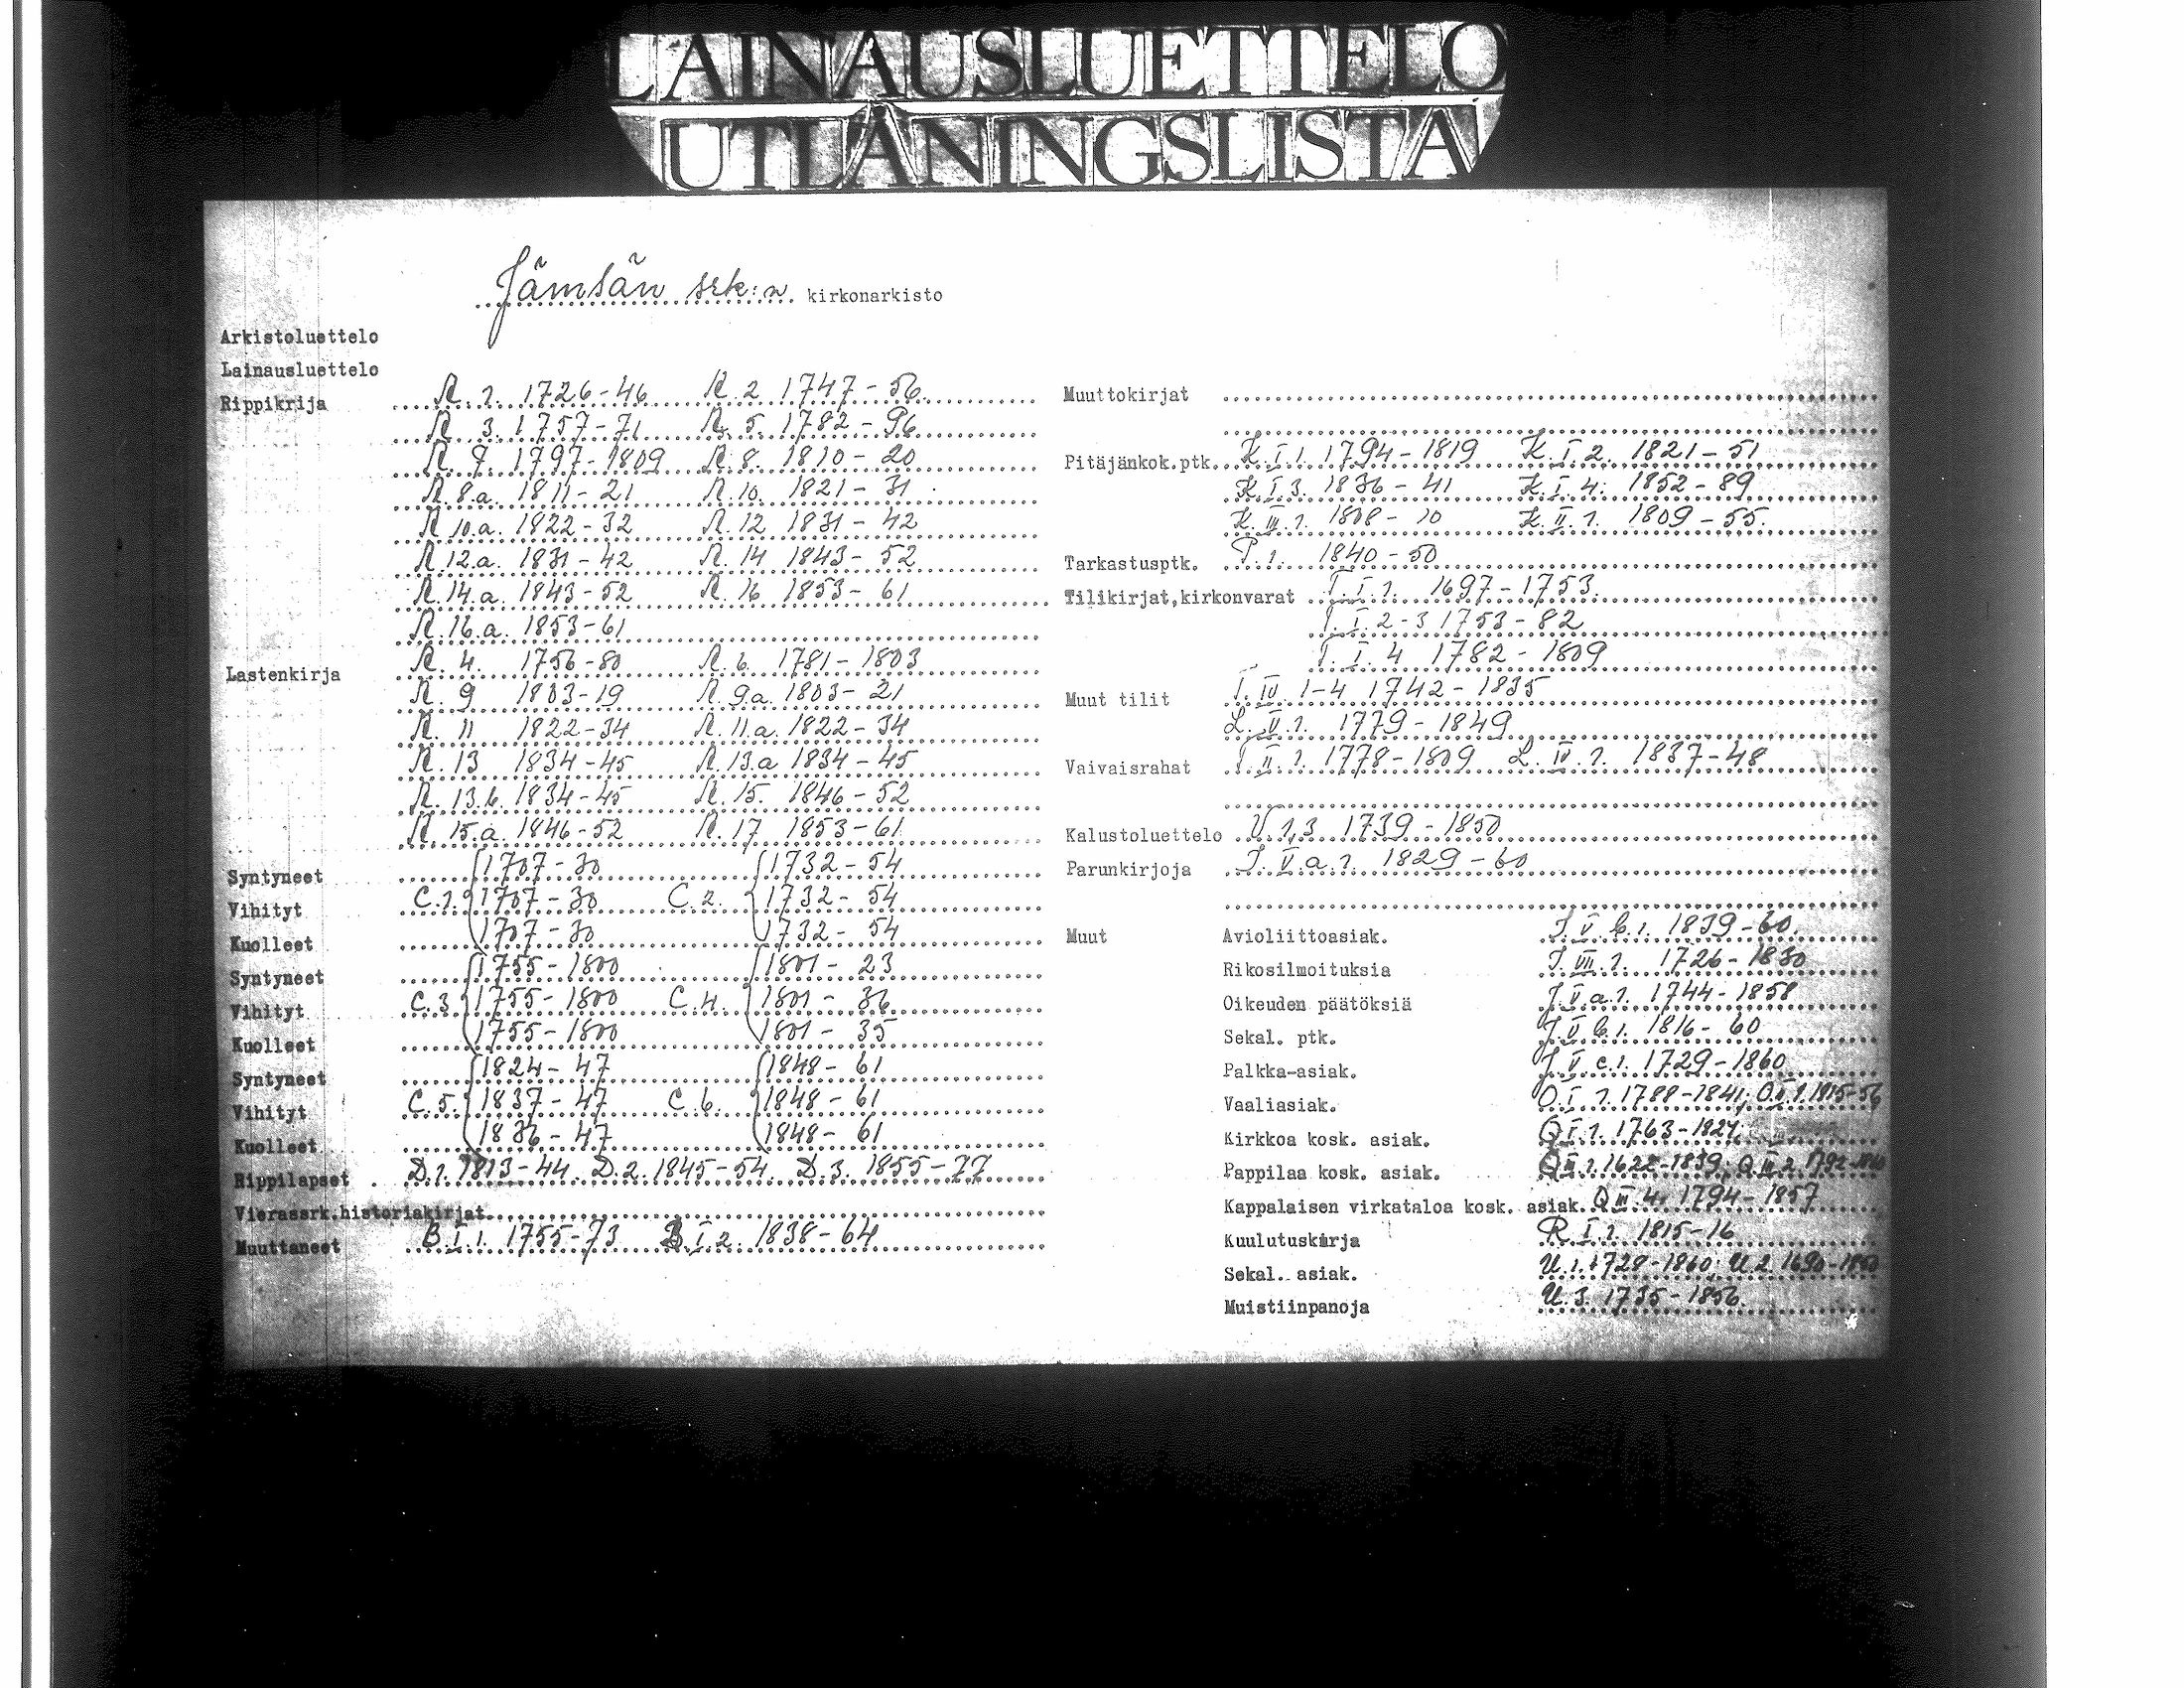 LAINAUSLUETTELO
UTLÅNINGSLISTA
Jämsän srk:n kirkonarkisto
Arkistoluettelo
Lainausluettelo
Rippikrija R. 1. 1726-46 R. 2 1747-56
R. 3. 1757-71 R. 5. 1782-96
R. 7. 1797-1809 R. 8. 1810-20
R. 8.a. 1811-21 R. 10. 1821-31
R. 10.a. 1822-32 R. 12 1831-42
R. 12.a. 1831-42 R. 14 1843-52
R. 14.a. 1843-52 R. 16 1853-61
R. 16.a. 1853-61
Lastenkirja R. 4. 1756-80 R. 6. 1781-1803
R. 9 1803-19 R. 9.a. 1803-21
R. 11 1822-34 R. 11.a. 1822-34
R. 13 1834-45 R. 13.a 1834-45
R. 13.b. 1834-45 R. 15. 1846-52
R. 15.a. 1846-52 R. 17 1853-61
Syntyneet 1707-30 1732-54
Vihityt C. 1. 1707-30 C. 2. 1732-54
Kuolleet 1707-30 1732-54
Syntyneet 1755-1800 1801-23
Vihityt C. 3 1755-1800 C. 4. 1801-36
Kuolleet 1755-1800 1801-35
Syntyneet 1824-47 1848-61
Vihityt C. 5. 1837-47 C. 6. 1848-61
Kuolleet 1836-47 1848-61
Rippilapset D. 1. 1813-44 D. 2. 1845-54 D. 3. 1855-77
Vierassrk.historiakirjat
Muuttaneet B. I 1. 1755-73 B. I 2. 1838-64
Muuttokirjat
Pitäjänkok.ptk. K. I 1. 1794-1819 K. I 2. 1821-51
K. I 3. 1836-41 K. I 4. 1852-89
K. III. 1. 1808-10 K. II. 1. 1809-55.
Tarkastusptk. P. 1. 1840-50
Tilikirjat,kirkonvarat T. I. 1. 1697-1753.
T. I. 2-3 1753-82
T. I. 4 1782-1809
Muut tilit T. IV. 1-4 1742-1835
L. V. 1. 1779-1849
Vaivaisrahat T. II. 1. 1778-1809 L. IV. 1. 1837-48
Kalustoluettelo V. 1,3 1739-1850
Parunkirjoja I. V. a. 1. 1829-60
Muut Avioliittoasiak. I. V. b. 1. 1839-60.
Rikosilmoituksia I. VII. 1. 1726-1830
Oikeuden päätöksiä J. V. a. 1. 1744-1858
Sekal. ptk. J. V. b. 1. 1816-60
Palkka-asiak. J. V c. 1. 1729-1860
Vaaliasiak. O. I 1. 1788-1841; O. II 1. 1815-56
Kirkkoa kosk. asiak. Q I. 1. 1763-1827
Pappilaa kosk. asiak. Q III. 1. 1622-1839; Q III. 2. 1792-1860
Kappalaisen virkataloa kosk. asiak. Q III 4. 1794-1857
Kuulutuskirja R I 1. 1815-16
Sekal. asiak. U. 1. 1728-1860; U. 2. 1690-1850
Muistiinpanoja U. 3. 1735-1856.